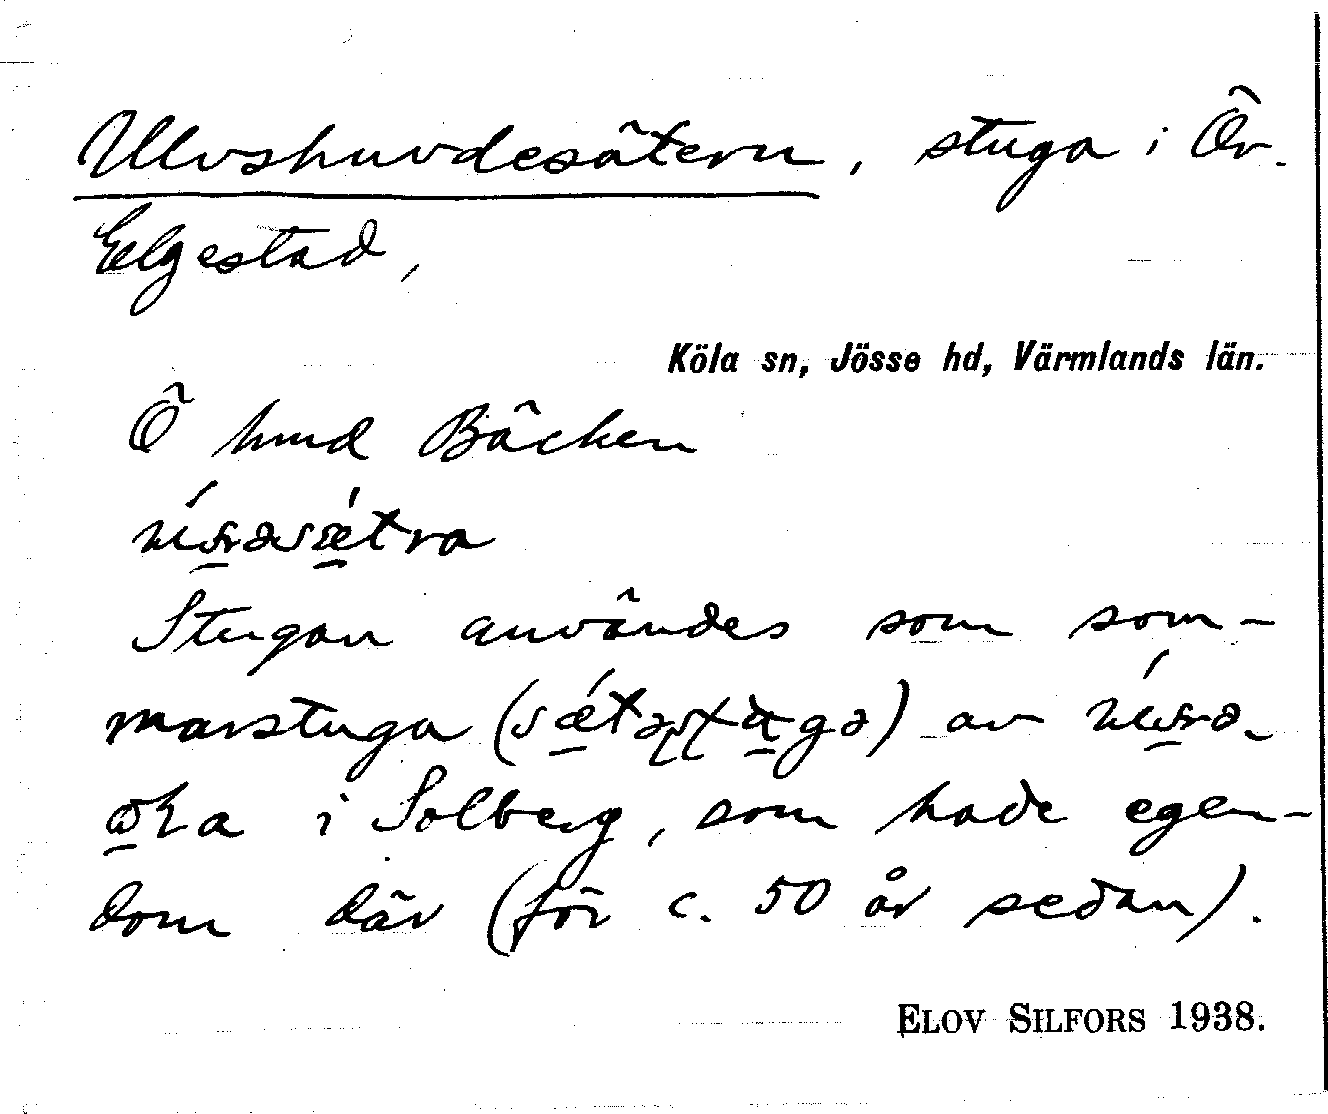 Ulvshuvdesätern, stuga i Ör.
Elgestad,
Köla sn, Jösse hd, Värmlands län.
Ö hmd Bäcken
Stugan användes som som-
marstuga av
i Solberg, som hade egen-
dom där (för c. 50 år sedan).
ELOV SILFORS 1938.